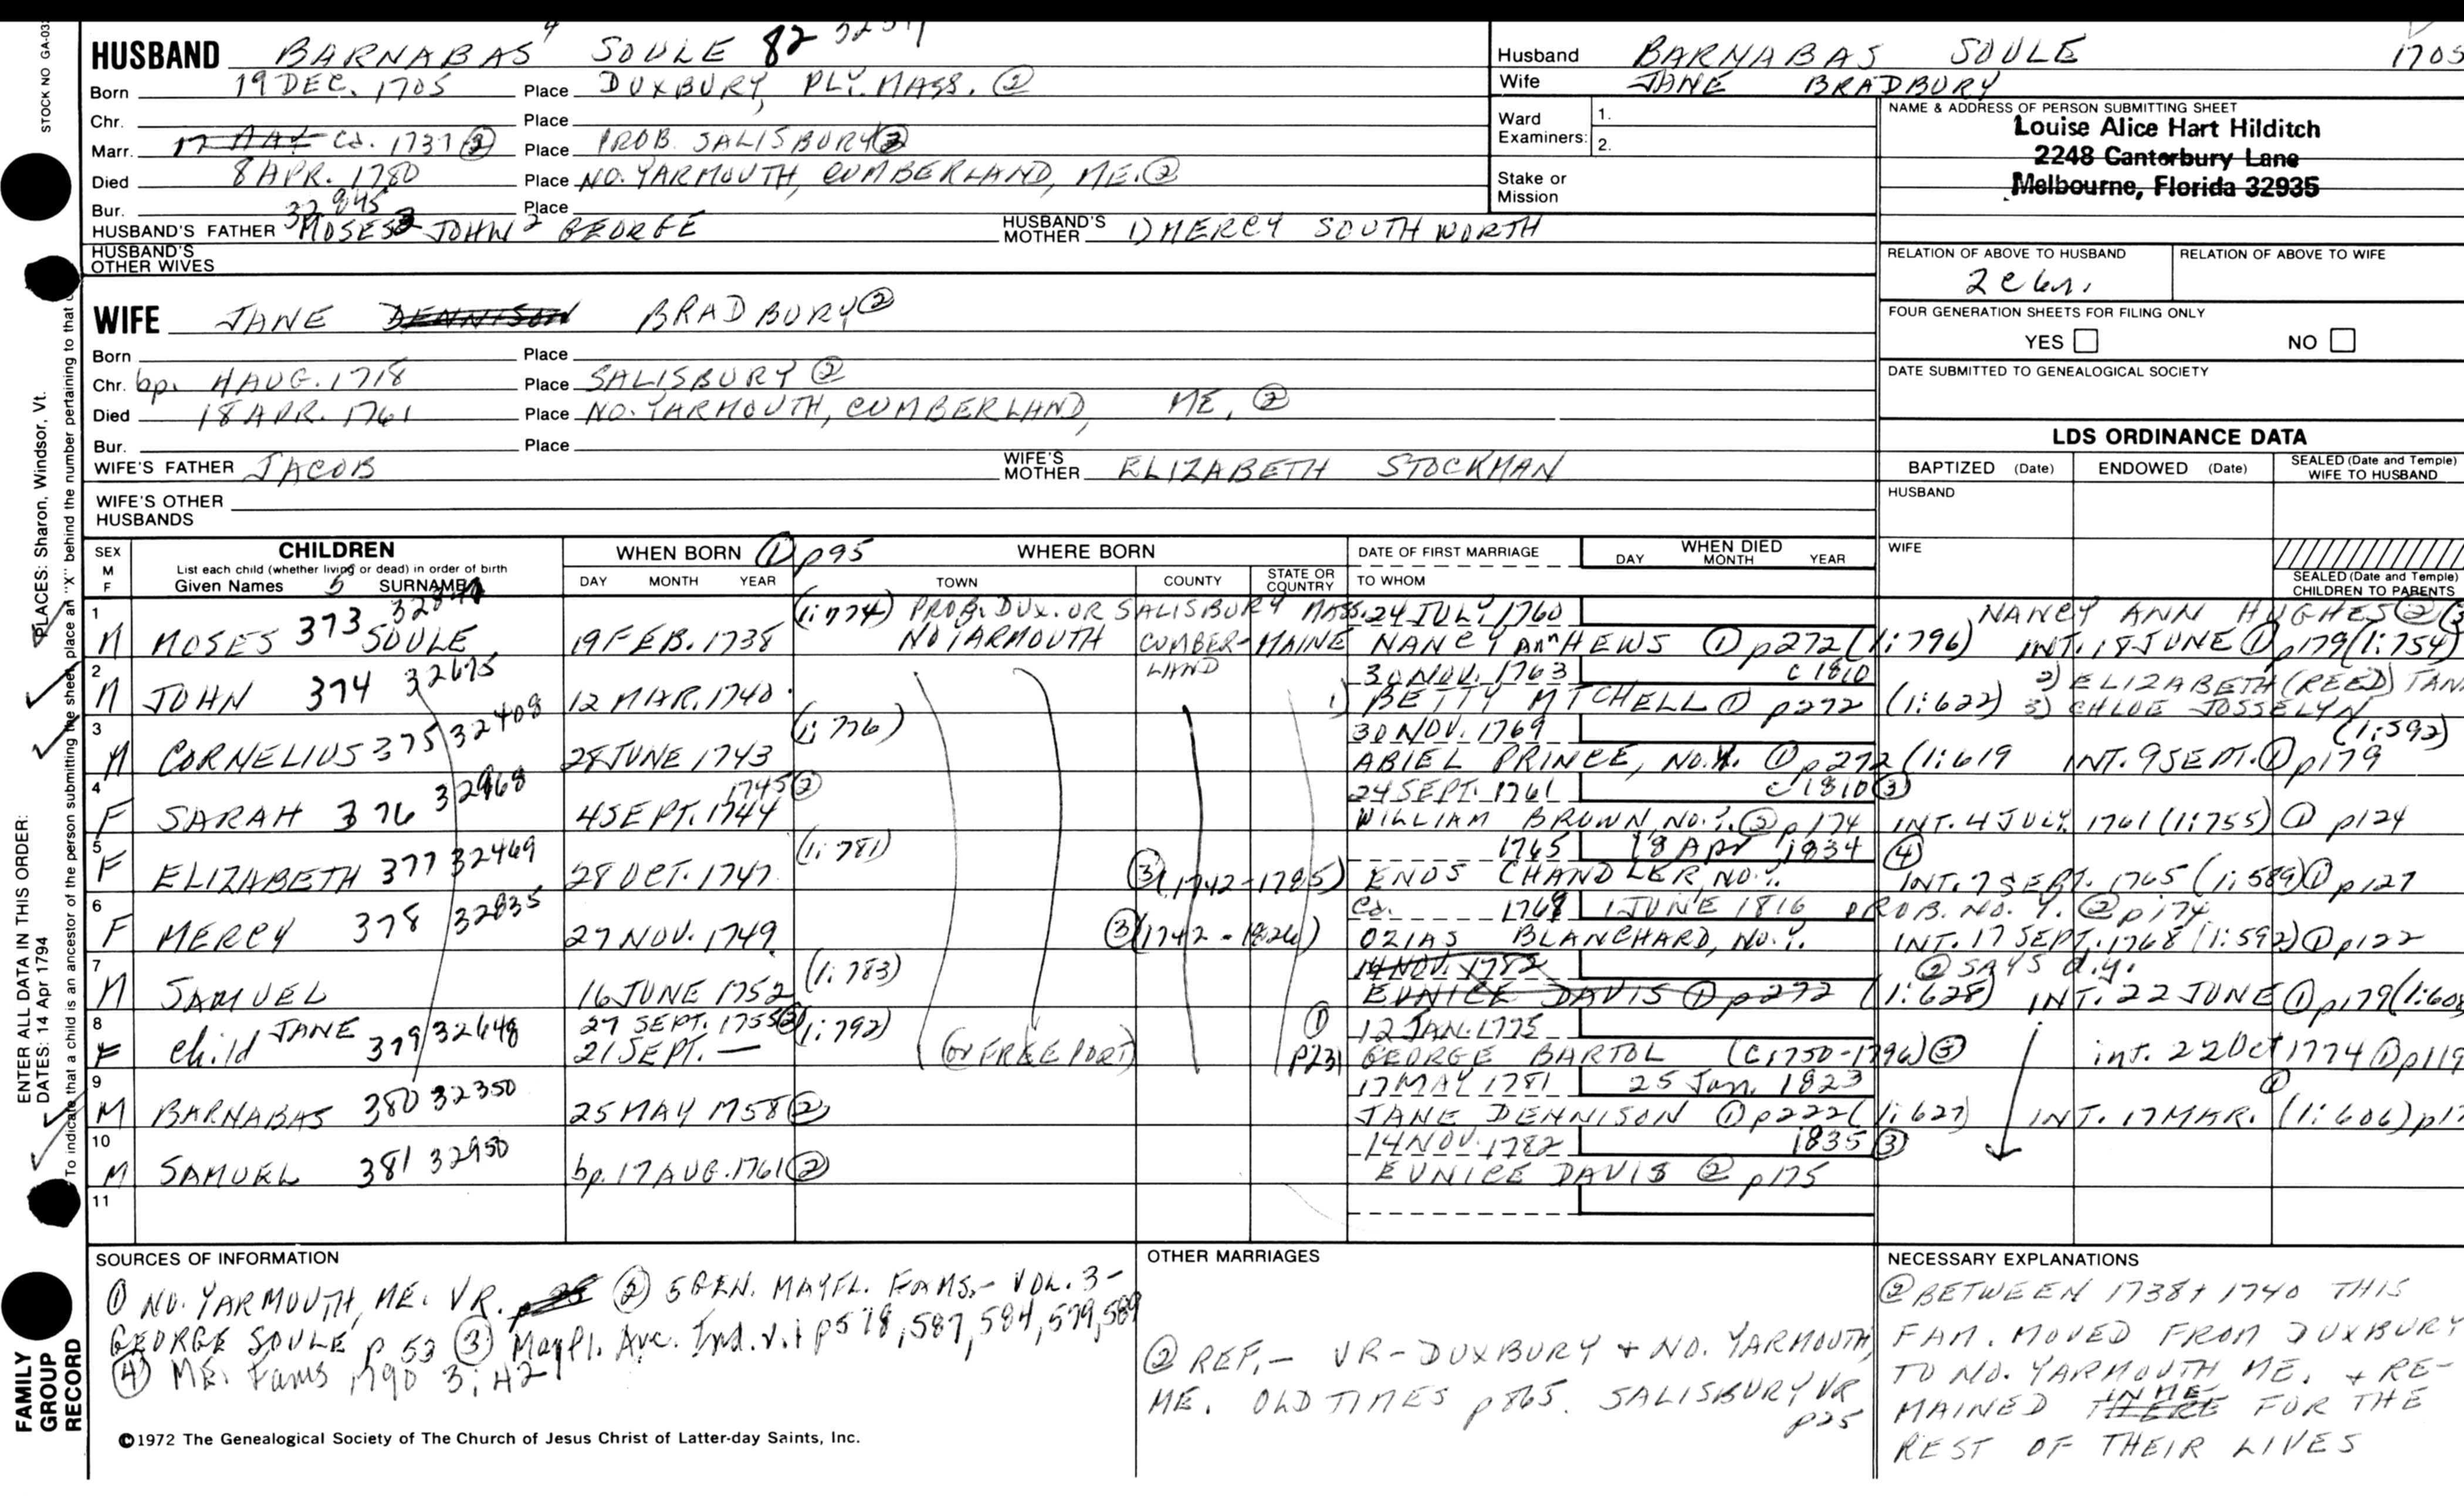 STOCK NO GA-03
HUSBAND BARNABAS 4 SOULE 82
Born 19 DEC. 1705 Place DUXBURY, PLY. MASS. ②
Chr. Place
Marr. 17 MAY Ca. 1737 ② Place PROB. SALISBURY ②
Died 8 APR. 1780 Place NO. YARMOUTH, CUMBERLAND, ME. ②
Bur. 32845 Place
HUSBAND'S FATHER MOSES 3 JOHN 2 GEORGE HUSBAND'S MOTHER 1) MERCY SOUTHWORTH
HUSBAND'S OTHER WIVES
WIFE JANE DENNISON BRADBURY ②
Born Place
Chr. bp. 4 AUG. 1718 Place SALISBURY ②
Died 18 APR. 1761 Place NO. YARMOUTH, CUMBERLAND, ME. ②
Bur. Place
WIFE'S FATHER JACOB WIFE'S MOTHER ELIZABETH STOCKMAN
WIFE'S OTHER HUSBANDS
Husband BARNABAS SOULE 1705
Wife JANE BRADBURY
Ward Examiners: 1.
2.
Stake or Mission
NAME & ADDRESS OF PERSON SUBMITTING SHEET
Louise Alice Hart Hilditch
2248 Canterbury Lane
Melbourne, Florida 32935
RELATION OF ABOVE TO HUSBAND RELATION OF ABOVE TO WIFE
FOUR GENERATION SHEETS FOR FILING ONLY
YES NO
DATE SUBMITTED TO GENEALOGICAL SOCIETY
LDS ORDINANCE DATA
BAPTIZED (Date) ENDOWED (Date) SEALED (Date and Temple) WIFE TO HUSBAND
HUSBAND
WIFE
SEALED (Date and Temple) CHILDREN TO PARENTS
SEX M F
CHILDREN
List each child (whether living or dead) in order of birth
Given Names 5 SURNAME
WHEN BORN ① p95 WHERE BORN
DAY MONTH YEAR TOWN COUNTY STATE OR COUNTRY
DATE OF FIRST MARRIAGE
TO WHOM
WHEN DIED
DAY MONTH YEAR
1 (1:774) PROB. DUX. OR SALISBURY MASS. 24 JULY 1760 NANCY ANN HUGHES ② (3
M MOSES 373 SOULE 19 FEB. 1738 NO YARMOUTH CUMBERLAND MAINE NANCY Ann HEWS ① p272 (1:796) INT. 18 JUNE ① p179 (1:754)
2 32675 30 NOV. 1763 c 1810 2) ELIZABETH (REED) TAN
M JOHN 374 12 MAR. 1740 1) BETTY MTCHELL ① p272 (1:622) 3) CHLOE JOSSELYN
3 32408 (1:776) 30 NOV. 1769 (1:592)
M CORNELIUS 375 28 JUNE 1743 ABIEL PRINCE, NO. Y. ① p272 (1:619 INT. 9 SEPT. ① p179
4 32968 1745 ② 24 SEPT. 1761 c 1810 ③
F SARAH 376 4 SEPT. 1744 WILLIAM BROWN, NO. Y. ② p174 INT. 4 JULY 1761 (1:755) ① p124
5 32469 (1:781) 1765 18 Apr 1834 ④
F ELIZABETH 377 28 OCT. 1747 ③ (1742-1785) ENOS CHANDLER, NO. Y. INT. 7 SEPT. 1765 (1:589) ① p127
6 32835 Ca. 1768 1 JUNE 1816 PROB. NO. Y. ② p174
F MERCY 378 27 NOV. 1749 ③ (1742-1826) OZIAS BLANCHARD, NO. Y. INT. 17 SEPT. 1768 (1:592) ① p122
7 (1:783) 14 NOV. 1782 ② SAYS d.y.
M SAMUEL 16 JUNE 1752 EUNICE DAVIS ① p272 (1:628) INT. 22 JUNE ① p179 (1:608
8 JANE 27 SEPT. 1755 ② (1:792) ① 12 JAN. 1775
F child 379 32648 21 SEPT. — (or FREEPORT) p231 GEORGE BARTOL (C1750-1796) ③ int. 22 Oct 1774 ① p119
9 17 MAY 1781 25 Jan. 1823
M BARNABAS 380 32350 25 MAY 1758 ② JANE DENNISON ① p222 (1:627) INT. 17 MAR. (1:606) ①
10 14 NOV. 1782 1835 ③
M SAMUEL 381 32950 bp. 17 AUG. 1761 ② EUNICE DAVIS ② p175
11
SOURCES OF INFORMATION
① NO. YARMOUTH, ME. VR. ② 5 GEN. MAYFL. FAMS.- VOL. 3-
GEORGE SOULE p 53 ③ Mayfl. Ind. v. 1 p578, 587, 584, 579, 589
④ ME. Fams 1790 3:42
OTHER MARRIAGES
② REF.- VR-DUXBURY + NO. YARMOUTH,
ME. OLD TIMES p865. SALISBURY VR
p25
NECESSARY EXPLANATIONS
② BETWEEN 1738 + 1740 THIS
FAM. MOVED FROM DUXBURY
TO NO. YARMOUTH ME. + RE-
MAINED THERE IN ME FOR THE
REST OF THEIR LIVES
©1972 The Genealogical Society of The Church of Jesus Christ of Latter-day Saints, Inc.
FAMILY GROUP RECORD
ENTER ALL DATA IN THIS ORDER:
DATES: 14 Apr 1794
PLACES: Sharon, Windsor, Vt.
To indicate that a child is an ancestor of the person submitting the sheet, place an "X" behind the number pertaining to that